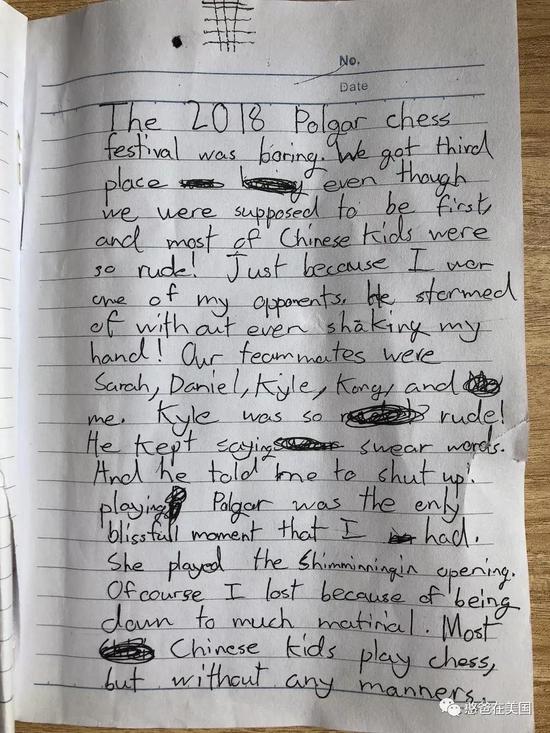 No.
Date
The 2018 Polgar chess
festival was boring. We got third
place even though
we were supposed to be first,
and most of Chinese kids were
so rude! Just because I won
one of my opponents. He stormed
of without even shaking my
hand! Our teammates were
Sarah, Daniel, Kyle, Kong, and
me. Kyle was so rude!
He kept saying swear words.
And he told me to shut up!
playing Polgar was the only
blissfull moment that I had.
She played the Shimminningin opening.
Ofcourse I lost because of being
down to much matirial. Most
Chinese kids play chess,
but without any manners.
憨爸在美国